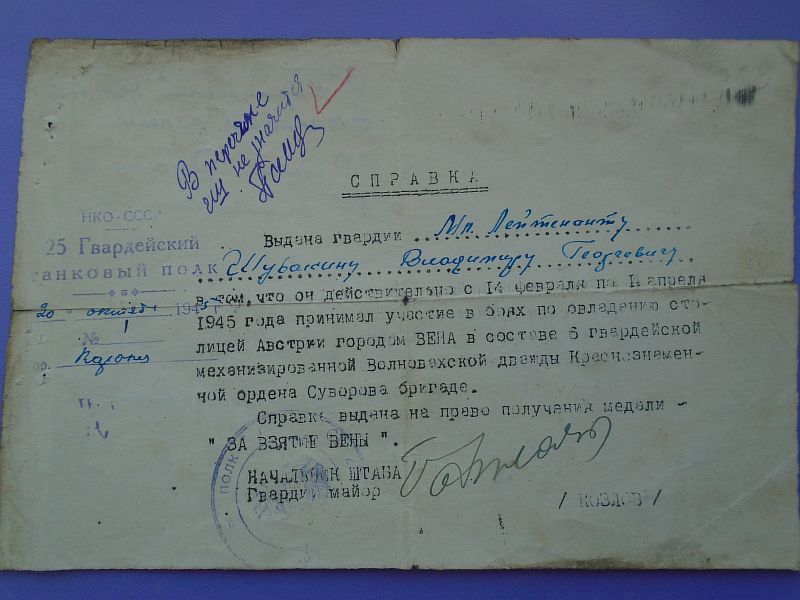 В перечне
не значится
СПРАВКА
НКО-СССР
25 Гвардейский
танковый полк
20 октября 1945 г
№ 1
Выдана гвардии Мл. Лейтенанту
Шувакину Владимиру Георгиевичу
в том, что он действительно с 14 февраля по апреля
1945 года принимал участие в боях по овладению сто-
лицей Австрии городом ВЕНА в составе 6 гвардейской
механизированной Волновахской дважды Краснознамен-
ной ордена Суворова бригаде.
Справка выдана на право получения медали -
" ЗА ВЗЯТИЕ ВЕНЫ ".
НАЧАЛЬНИК ШТАБА
Гвардии майор
/ КОЗЛОВ /
ПОЛК